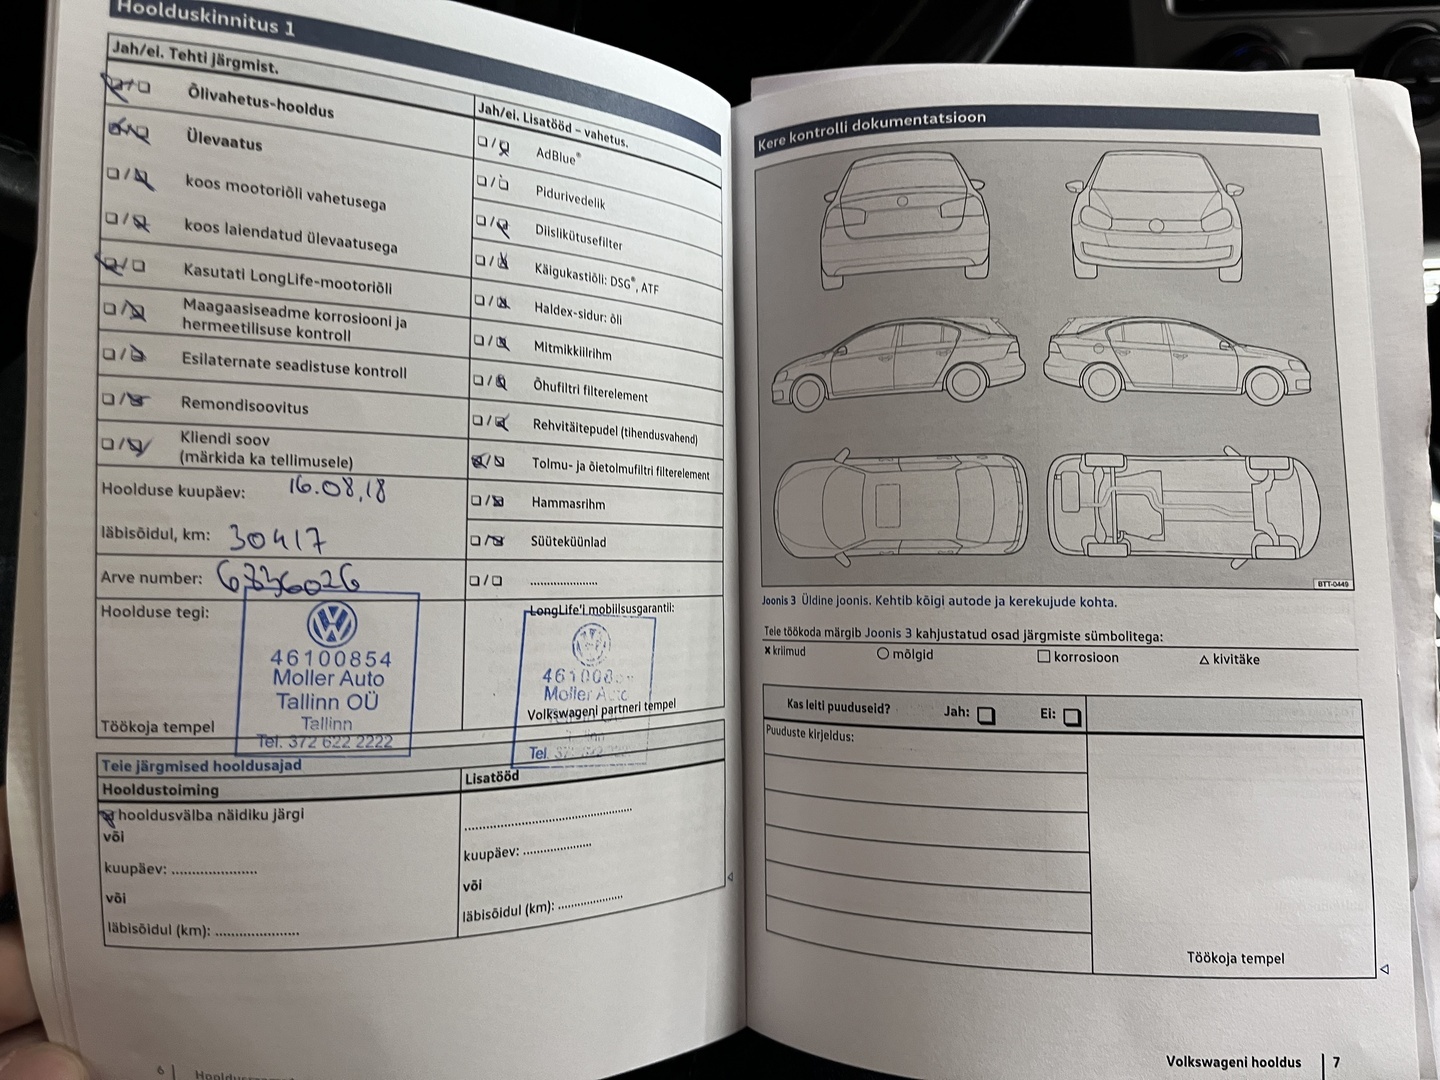 Hoolduskinnitus 1
Jah/ei. Tehti järgmist.
Õlivahetus-hooldus
Ülevaatus
koos mootoriõli vahetusega
koos laiendatud ülevaatusega
Kasutati LongLife-mootoriõli
Maagaasiseadme korrosiooni ja
hermeetilisuse kontroll
Esilaternate seadistuse kontroll
Remondisoovitus
Kliendi soov
(märkida ka tellimusele)
Hoolduse kuupäev: 16.08.18
läbisõidul, km: 30417
Arve number: 6736026
Hoolduse tegi:
46100854
Moller Auto
Tallinn OÜ
Tallinn
Tel. 372 622 2222
Töökoja tempel
Jah/ei. Lisatööd – vahetus.
AdBlue®
Pidurivedelik
Diislikütusefilter
Käigukastiõli: DSG®, ATF
Haldex-sidur: õli
Mitmikkiilrihm
Õhufiltri filterelement
Rehvitäitepudel (tihendusvahend)
Tolmu- ja õietolmufiltri filterelement
Hammasrihm
Süüteküünlad
......................
LongLife'i mobiilsusgarantii:
Moller
Volkswageni partneri tempel
Tel.
Teie järgmised hooldusajad
Hooldustoiming
hooldusvälba näidiku järgi
või
kuupäev: ......................
või
läbisõidul (km): ......................
Lisatööd
............................................
kuupäev: ..................
või
läbisõidul (km): .................
6
Kere kontrolli dokumentatsioon
BTT-0449
Joonis 3 Üldine joonis. Kehtib kõigi autode ja kerekujude kohta.
Teie töökoda märgib Joonis 3 kahjustatud osad järgmiste sümbolitega:
× kriimud ○ mõlgid □ korrosioon △ kivitäke
Kas leiti puuduseid? Jah: □ Ei: □
Puuduste kirjeldus:
Töökoja tempel
Volkswageni hooldus | 7